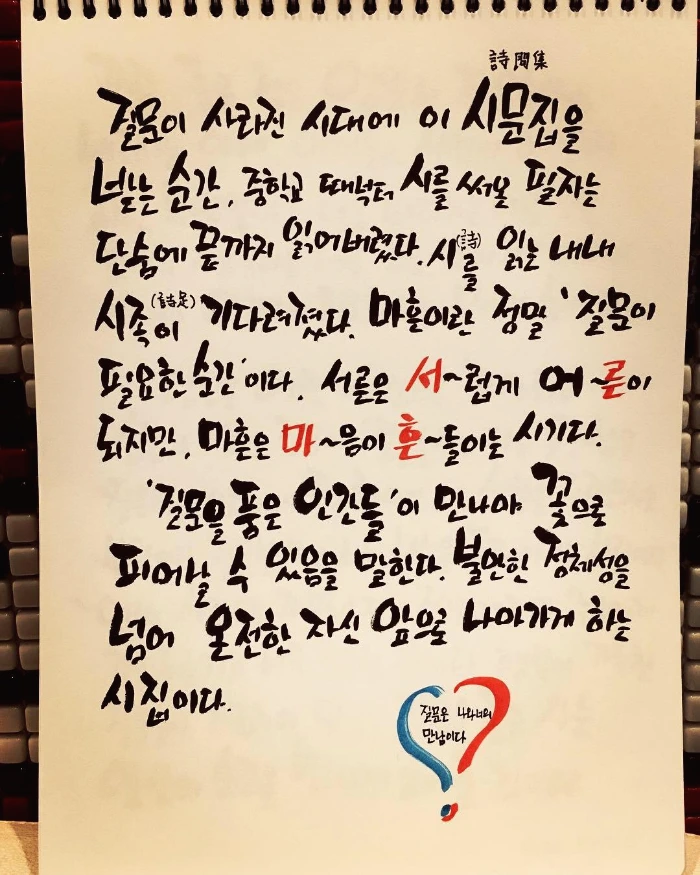 詩問集
질문이 사라진 시대에 이 시문집을
넘는 순간, 중학교 때부터 시를 써온 필자는
단숨에 끝까지 읽어버렸다. 시(詩)를 읽는 내내
시족(詩足)이 기다려졌다. 마흔이란 정말 '질문이
필요한 순간'이다. 서른은 서~럽게 어~른이
되지만, 마흔은 마~음이 흔~들이는 시기다.
'질문을 품은 인간들'이 만나야 꽃으로
피어날 수 있음을 말한다. 불안한 정체성을
넘어 온전한 자신 앞으로 나아가게 하는
시집이다.
질문은 나와너의
만남이다